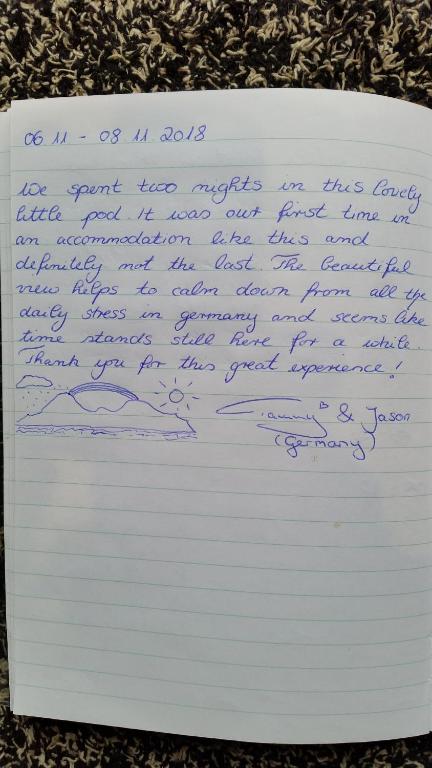 06.11 - 08.11.2018
We spent two nights in this lovely
little pod. It was our first time in
an accommodation like this and
definitely not the last. The beautiful
view helps to calm down from all the
daily stress in germany and seems like
time stands still here for a while.
Thank you for this great experience!
& Jason
(Germany)